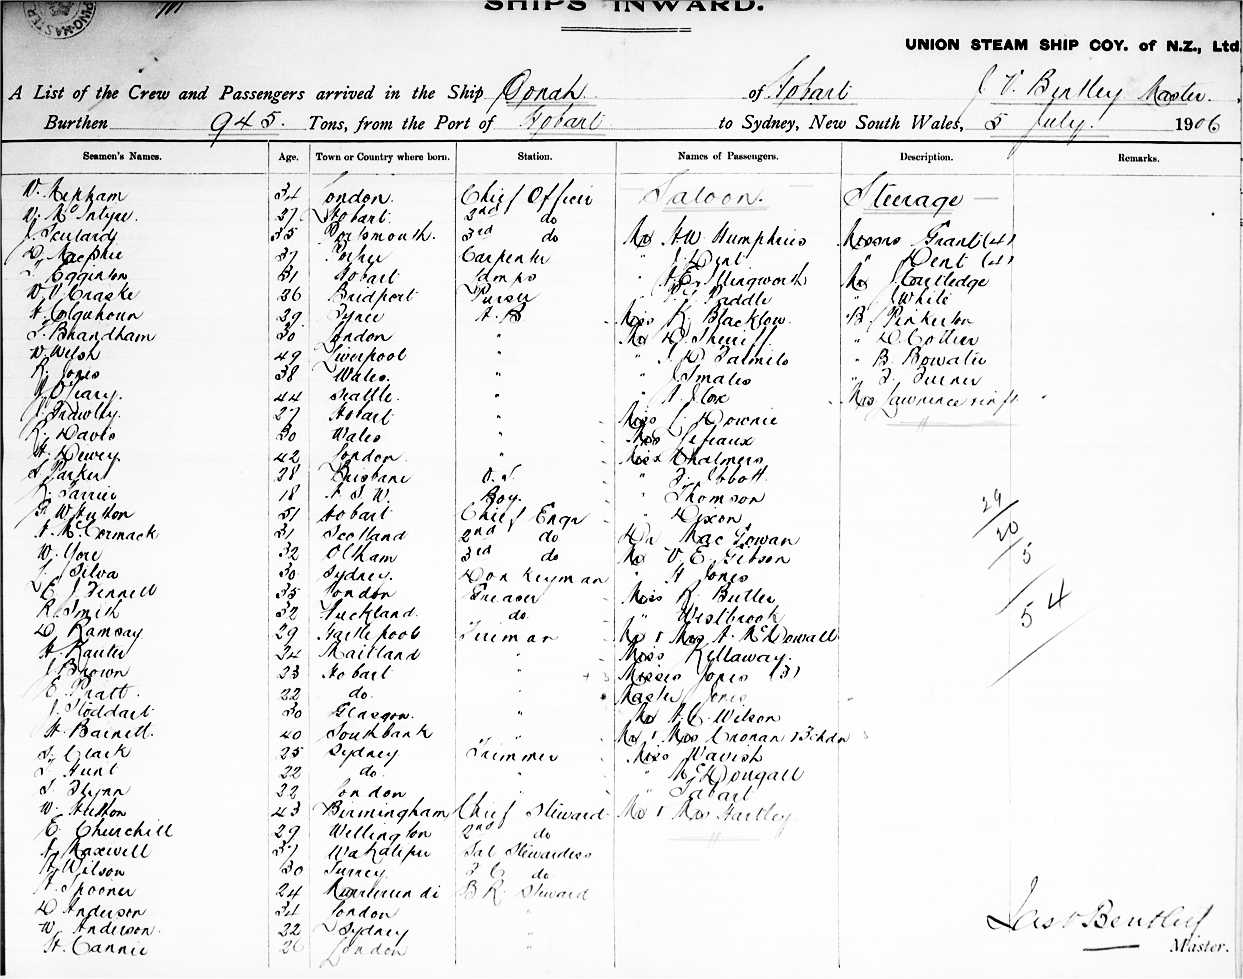 SHIPS INWARD.
UNION STEAM SHIP COY. of N.Z., Ltd
A List of the Crew and Passengers arrived in the Ship Oonah of Hobart J V. Bentley Master.
Burthen 945. Tons, from the Port of Hobart to Sydney, New South Wales, 5 July. 1906
Seamen's Names. Age. Town or Country where born. Station. Names of Passengers. Description. Remarks.
34 London. Chief Officer Saloon. Steerage
W. McIntyre. 37 Hobart. 2nd do
35 Portsmouth. 3rd do Mr H.W. Humphries Messrs Grant (4)
D. Macphie 37 Carpenter " J. Dent " Dent (4)
Egginton 51 Hobart Lamps " Illingworth Mr J. Routledge
W. V. Craske 36 Bridport Purser " Paddle " White
A. Colquhoun 29 Tyrie A. B Miss K. Blacklow. B. Pinkerton
Bhandham 30 London " Mr D. Sherriff " D. Cottier
W. Welsh 49 Liverpool " " D. " B. Bowater
R. Jones 38 Wales. " J Smales " F. Turner
O'Leary. 44 Seattle. " " A J Cox Mrs Lawrence & inft
J. Frawley. 27 Hobart " Miss L. Downie
R. Davis 30 Wales " Mrs
A. Dewey. 42 London. " Miss Chalmers
Parker 28 Brisbane O. S. " F. Abbott
18 N. S. W. Boy. " Thomson
G. W. Hutton 51 Hobart Chief Engr " Dixon
A. McCormack 31 Scotland 2nd do Dr MacGowan
W. Yore 32 Oldham 3rd do Mr V. E. Gibson
Silva 30 Sydney. Donkeyman " H Jones
E. J. Fennell 35 London Greaser Miss R. Butler
R. Smith 32 Auckland. do. " Westbrook
D. Ramsay. 29 Hartlepool Fireman Mr & Mrs A. McDowall
34 Maitland " Miss Kellaway.
J. Brown 23 Hobart " Misses Jones (3)
E. Pratt. 22 do. " Master Jones
J. Stoddart 30 Glasgow. " Mr A. C. Wilson
A. Barnett. 40 Southbank " Mr & Mrs Cronan & 3 chdn
Clark 25 Sydney Trimmer Miss Davish
Hunt 22 do. " " McDougall
Flynn 32 London " " Tabart
W. Hutton 43 Birmingham Chief Steward Mr & Mrs Hartley
E. Churchill 29 Wellington 2nd do
A. Maxwell 37 Wakatipu Sal Stewardess
A. Wilson 30 Surrey F. C. do
A. Spooner 24 B. R. Steward
D. Anderson 34 London "
W. Anderson. 22 Sydney "
H. Cannie 26 London "
29
20
5
54
Jas V Bentley
Master.